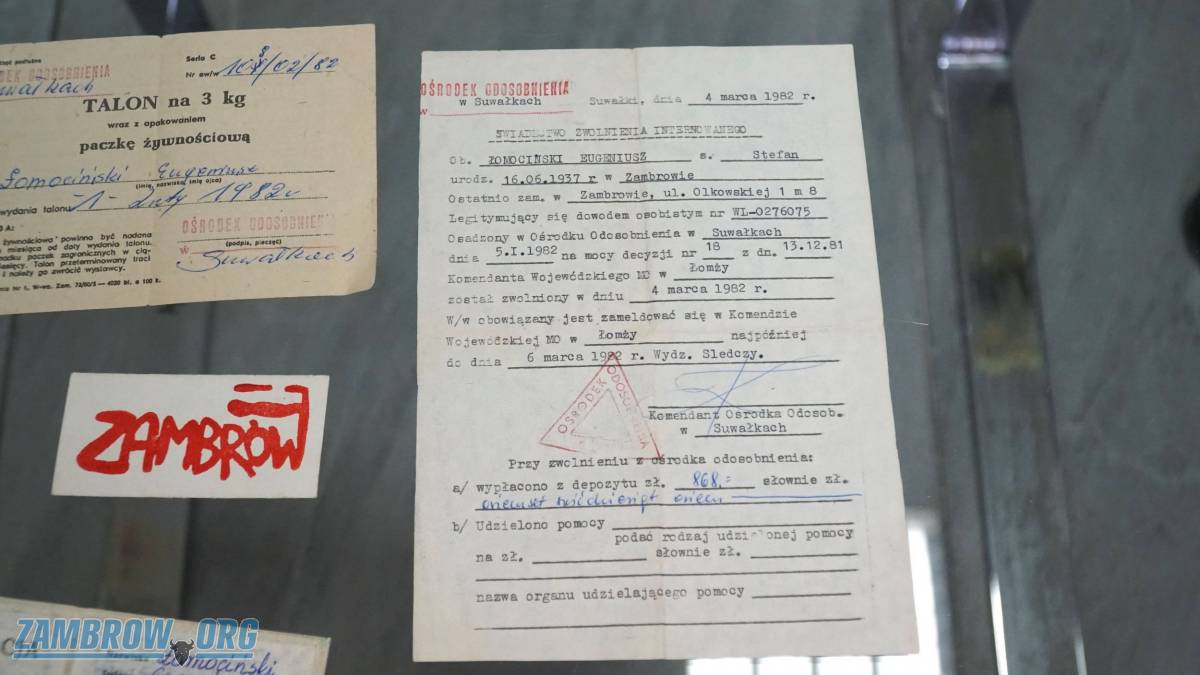 Seria C
ODEK ODOSOBNIENIA
Nr ew/w 108/02/82
Suwałkach
TALON na 3 kg
wraz z opakowaniem
paczkę żywnościową
Łomociński Eugeniusz
(imię, nazwisko, imię ojca)
wydania talonu 1-luty 1982
OŚRODEK ODOSOBNIEN
w
(podpis, pieczęć)
Suwałkach
żywnościowa powinna być nadana
miesiąca od daty wydania talonu.
padku paczek zagranicznych w cią-
iesięcy. Talon przeterminowany traci
i należy go zwrócić wystawcy.
nie Nr 1, W-wa. Zam. 73/80/S — 4020 bl. a 100 k.
ZAMBRÓW
OŚRODEK ODOSOBNIENIA
w Suwałkach Suwałki, dnia 4 marca 1982 r.
w
ŚWIADECTWO ZWOLNIENIA INTERNOWANEGO
Ob. ŁOMOCIŃSKI EUGENIUSZ s. Stefan
urodz. 16.06.1937 r w Zambrowie
Ostatnio zam. w Zambrowie, ul. Olkowskiej 1 m 8
Legitymujący się dowodem osobistym nr WL-0276075
Osadzony w Ośrodku Odosobnienia w Suwałkach
dnia 5.I.1982 na mocy decyzji nr 18 z dn. 13.12.81
Komendanta Wojewódzkiego MO w Łomży
został zwolniony w dniu 4 marca 1982 r.
W/w obowiązany jest zameldować się w Komendzie
Wojewódzkiej MO w Łomży najpóźniej
do dnia 6 marca 1982 r. Wydz. Sledczy.
OŚRODEK ODOSOBNIENIA
Komendant Ośrodka Odosob.
w Suwałkach
Przy zwolnieniu z ośrodka odosobnienia:
a/ wypłacono z depozytu zł. 868,= słownie zł.
osiemset sześćdziesiąt osiem
b/ Udzielono pomocy
podać rodzaj udzielonej pomocy
na zł. słownie zł.
nazwa organu udzielającego pomocy
ZAMBROW.ORG
Łomociński